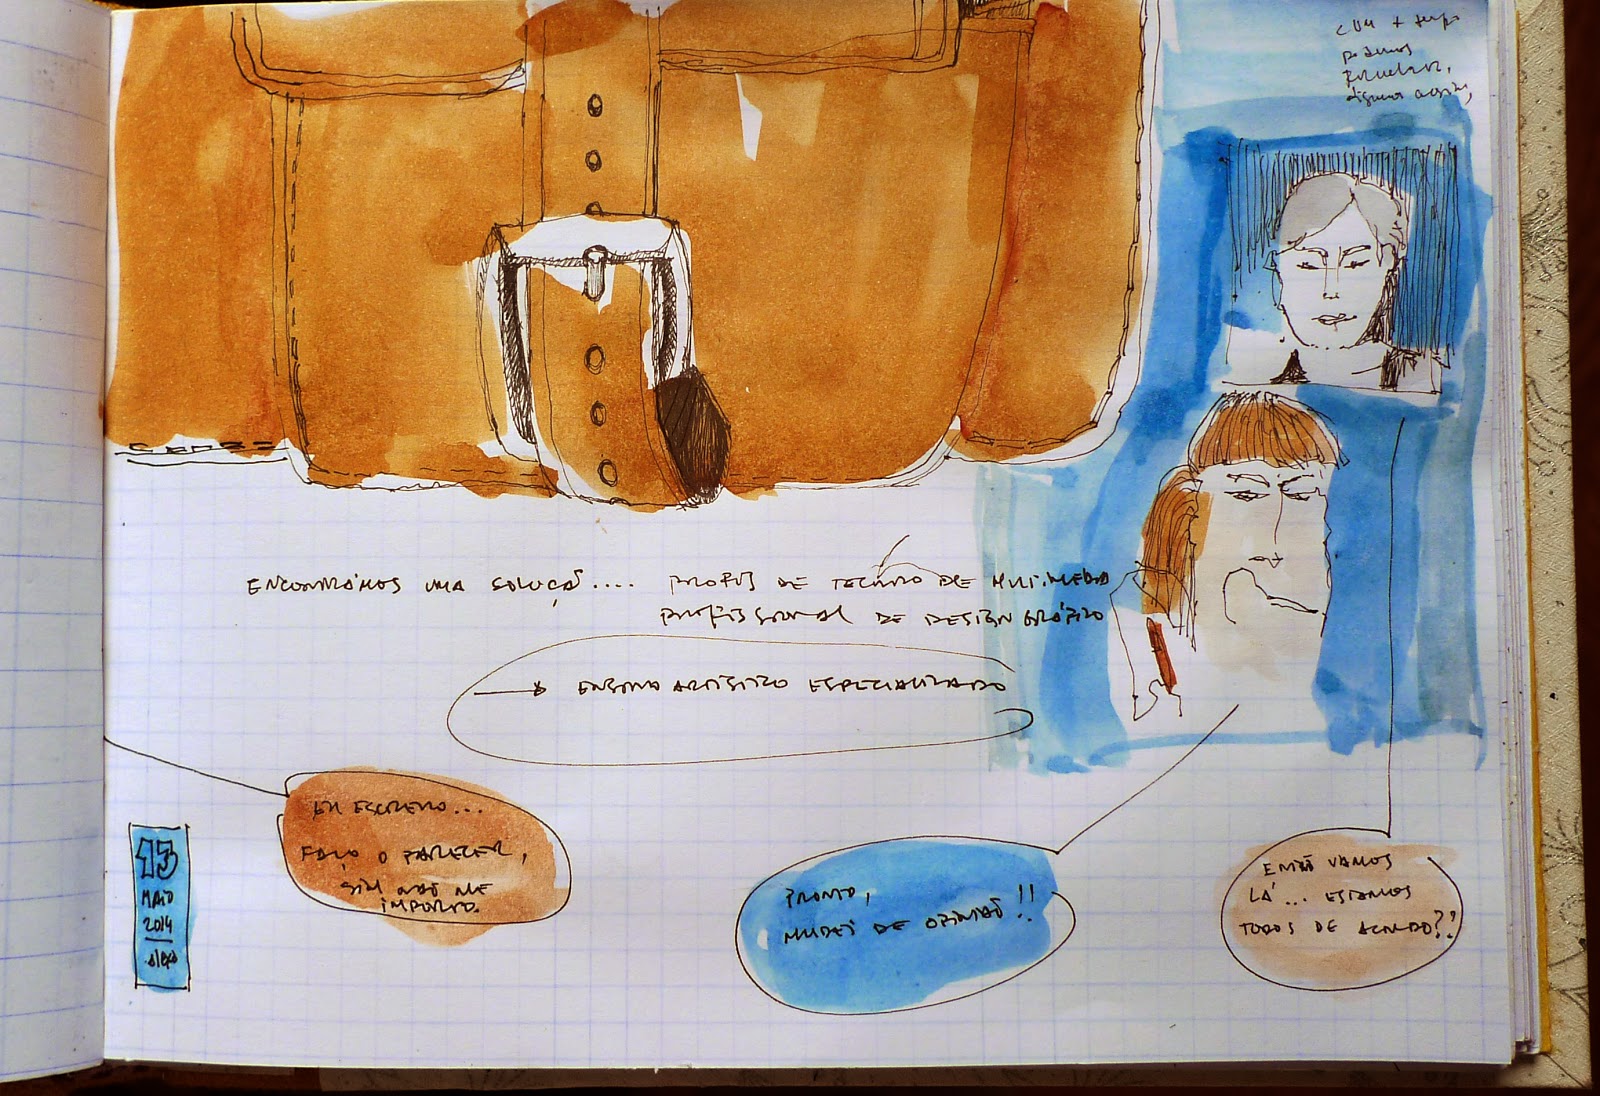 com + tempo
podemos
formular,
algumas opções,
ENCONTRÁMOS UMA SOLUÇÃO.... PROFIS DE TECNICO DE MULTIMEDIA
PROFISSIONAL DE DESIGN GRÁFICO
ENSINO ARTISTICO ESPECIALIZADO
EU ESCREVO...
FAÇO O PARECER,
SIM NÃO ME
IMPORTO.
PRONTO,
MUDEI DE OPINIÃO!!
ENTÃO VAMOS
LÁ... ESTAMOS
TODOS DE ACORDO?!
13
MAIO
2014